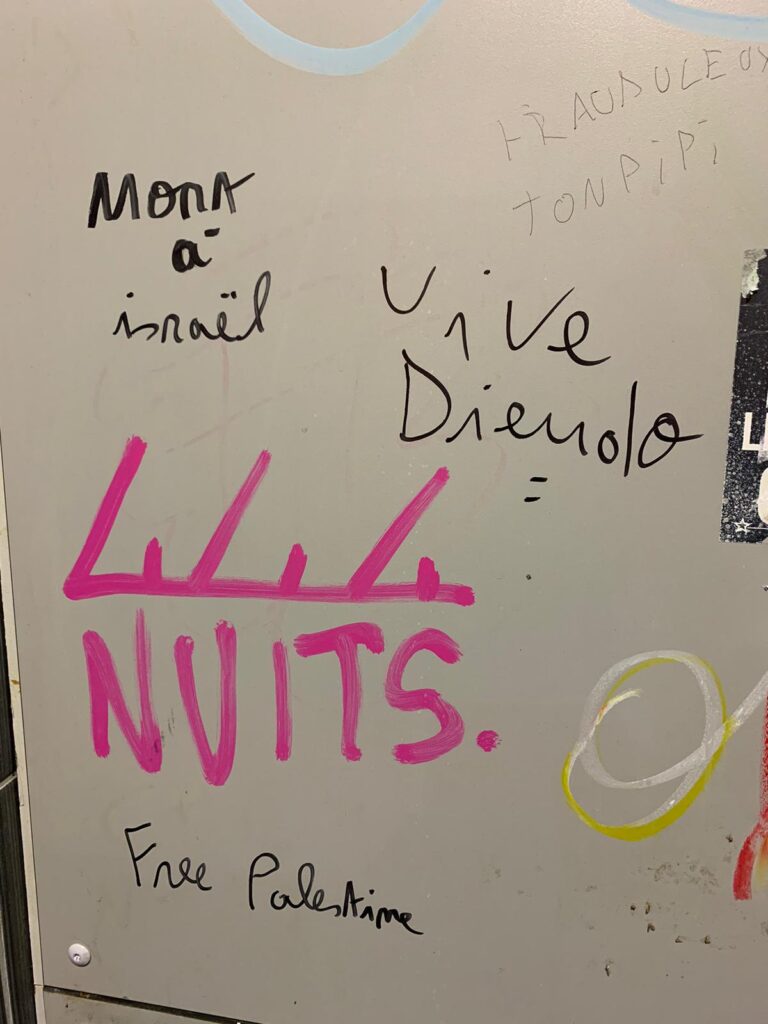 FRAUDULEUX
TON PiPi
Mort
à
israël
Vive
Dieudo
=
444
NUITS.
Free Palestine